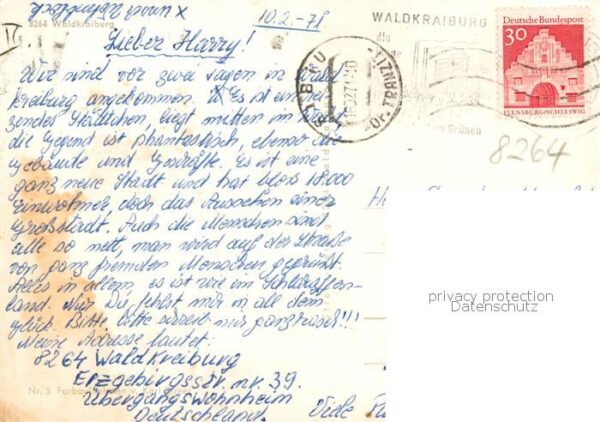 8264 Waldkraiburg
10.2.-71
WALDKRAIBURG
die
im Grünen
30
Deutsche Bundespost
FLENSBURG/SCHLESWIG
8264
Lieber Harry!
Wir sind vor zwei Tagen in Wald
kreiburg angekommen. Es ist ein rei-
zendes Städtchen, liegt mitten im
die Gegend ist phantastisch, ebenso die
Gebäude und Geschäfte. Es ist eine
ganz neue Stadt und hat blos 18.000
Einwohner, doch das Aussehen einer
Großstadt. Auch die Menschen sind
alle so nett, man wird auf der Straße
von ganz fremden Menschen gegrüßt.
Alles in allem, es ist wie im Schlaraffen-
land. Nur Du fehlst mir in all dem
Glück. Bitte, bitte schreib mir ganz rasch!!!
Meine Adresse lautet:
8264 Waldkreiburg
Erzgebirgsstr. nr. 39.
Übergangswohnheim
Deutschland.
Viele
Nr. 5
privacy protection
Datenschutz